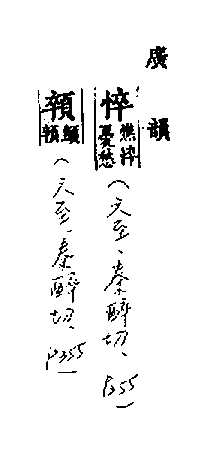 廣韻
悴 憔悴憂愁 (六至、秦醉切、P355
顇 顦顇 (六至、秦醉切、P355